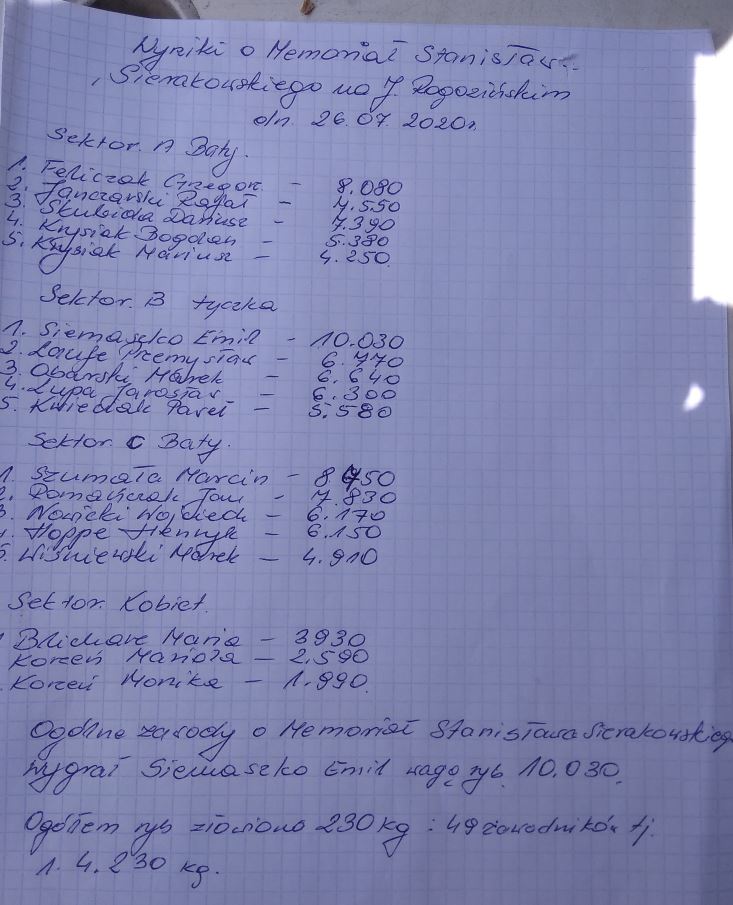 Wyniki o Memoriał Stanisława
Sierakowskiego na J. Rogozińskim
dn. 26.07.2020r.
Sektor. A Baty.
1. Feliczak Grzegorz - 8.080
2. Janczarski Rafał - 7.550
3. Skubida Dariusz - 7.390
4. Krysiak Bogdan - 5.380
5. Krysiak Mariusz - 4.250.
Sektor. B tyczka
1. Siemaszko Emil - 10.030
2. Laufe Przemysław - 6.770
3. Obarski Marek - 6.640
4. Lupa Jarosław - 6.300
5. Kwieciak Paweł - 5.580
Sektor. C Baty.
1. Szumała Marcin - 8.750
2. Romańczak Jan - 7.830
3. Nowicki Wojciech - 6.170
4. Hoppe Henryk - 6.150
5. Wiśniewski Marek - 4.910
Sektor. Kobiet.
Maria - 3930
Korzeń Mariola - 2.590
Korzeń Monika - 1.990.
Ogólne zawody o Memoriał Stanisława Sierakowskieg
wygrał Siemaszko Emil wagą ryb 10.030.
Ogółem ryb złowiono 230 kg : 49 zawodników tj.
1. 4.230 kg.